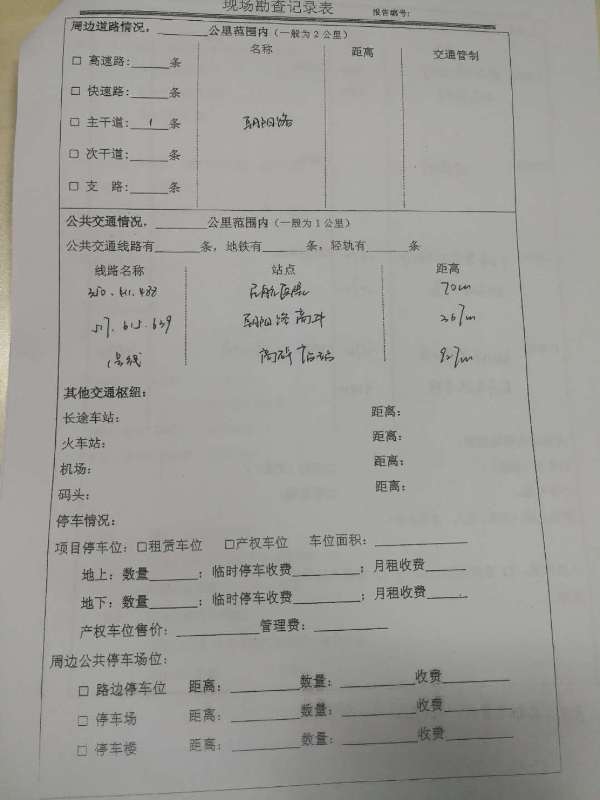 现场勘查记录表 报告编号:
周边道路情况,______公里范围内(一般为2公里)
名称 距离 交通管制
□ 高速路:_____条
□ 快速路:_____条
□ 主干道:__1__条 朝阳路
□ 次干道:_____条
□ 支 路:_____条
公共交通情况,______公里范围内(一般为1公里)
公共交通线路有_____条,地铁有_____条;轻轨有_____条
线路名称 站点 距离
350. 411. 488 民航医院 70m
517. 615. 639 朝阳路高井 367m
1号线 927m
其他交通枢纽:
长途车站: 距离:
火车站: 距离:
机场: 距离:
码头: 距离:
停车情况:
项目停车位:□租赁车位 □产权车位 车位面积:__________
地上:数量______;临时停车收费________;月租收费_____
地下:数量______;临时停车收费________;月租收费_____
产权车位售价:__________管理费:_________
周边公共停车场位:
□ 路边停车位 距离:________数量:_________收费________
□ 停车场 距离:________数量:_________收费________
□ 停车楼 距离:________数量:_________收费________